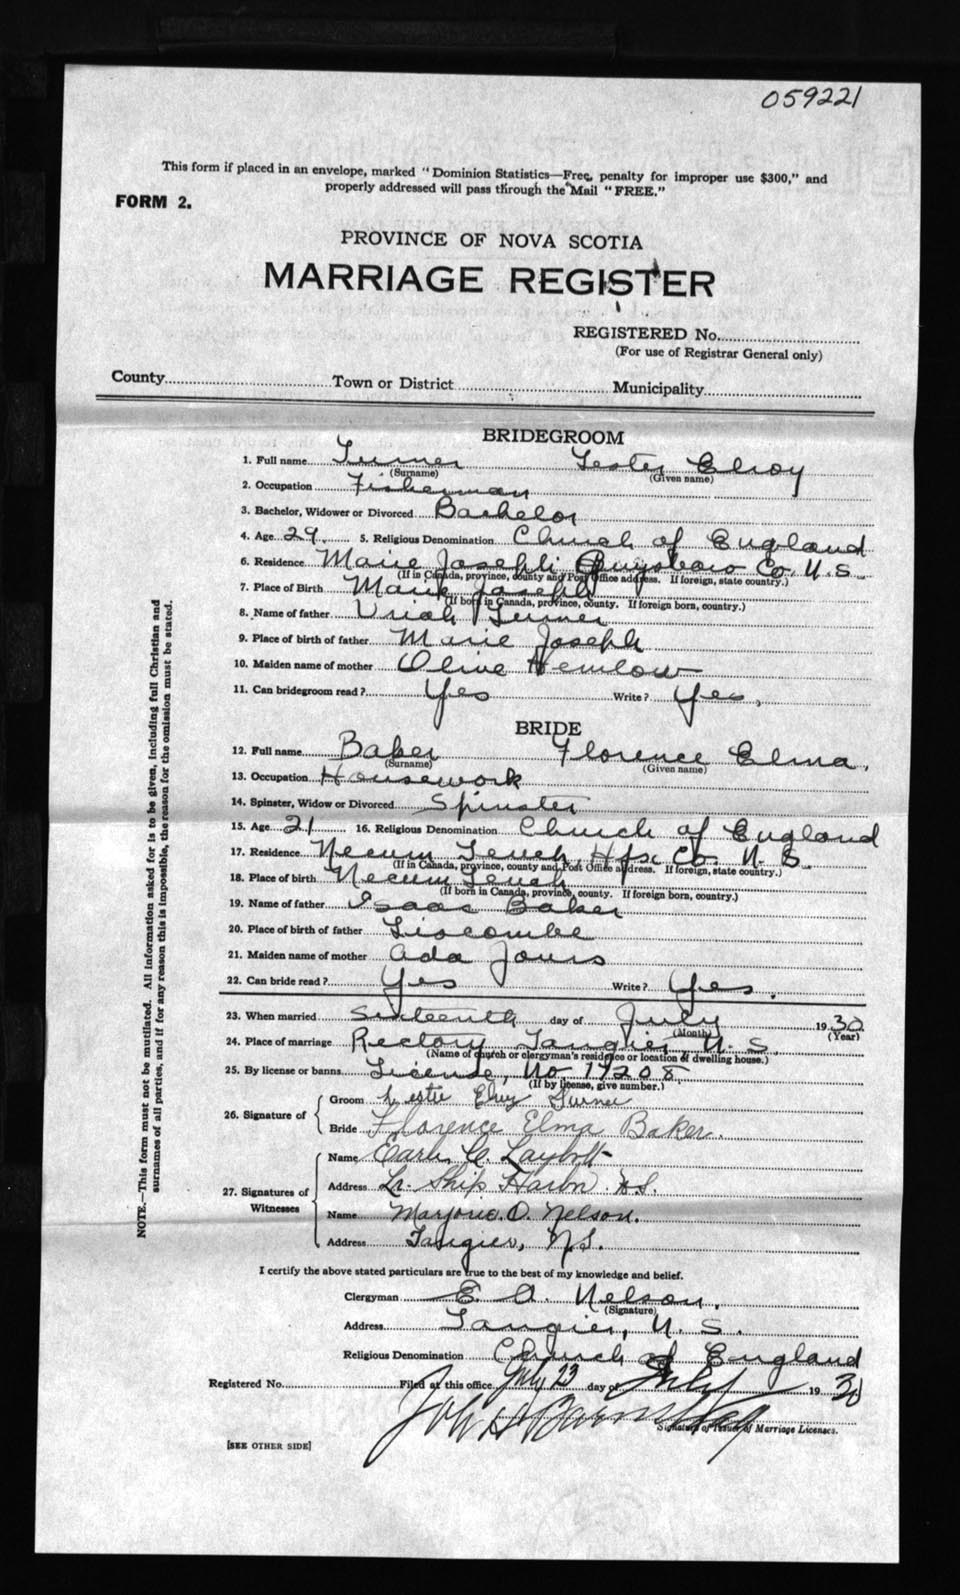 059221
This form if placed in an envelope, marked "Dominion Statistics—Free, penalty for improper use $300," and
properly addressed will pass through the Mail "FREE."
FORM 2.
PROVINCE OF NOVA SCOTIA
MARRIAGE REGISTER
REGISTERED No.
(For use of Registrar General only)
County Town or District Municipality
BRIDEGROOM
1. Full name Turner Lester Elroy
(Surname) (Given name)
2. Occupation Fisherman
3. Bachelor, Widower or Divorced Bachelor
4. Age 29 5. Religious Denomination Church of England
6. Residence Marie Joseph Guysboro Co. N.S.
(If in Canada, province, county and Post Office address. If foreign, state country.)
7. Place of Birth Marie Joseph
(If born in Canada, province, county. If foreign born, country.)
8. Name of father Uriah Turner
9. Place of birth of father Marie Joseph
10. Maiden name of mother Olive Hemlow
11. Can bridegroom read? Yes Write? Yes,
BRIDE
12. Full name Baker Florence Elma.
(Surname) (Given name)
13. Occupation Housework
14. Spinster, Widow or Divorced Spinster
15. Age 21 16. Religious Denomination Church of England
17. Residence Necum Teuch, Hfx Co. N.S.
(If in Canada, province, county and Post Office address. If foreign, state country.)
18. Place of birth Necum Teuch
(If born in Canada, province, county. If foreign born, country.)
19. Name of father Isaac Baker
20. Place of birth of father Liscombe
21. Maiden name of mother Ada Jours
22. Can bride read? Yes Write? Yes.
23. When married sixteenth day of July 1930
(Month) (Year)
24. Place of marriage Rectory Tangier, N.S.
(Name of church or clergyman's residence or location of dwelling house.)
25. By license or banns License, No 17208
(If by license, give number.)
26. Signature of
Groom Lester Elroy Turner
Bride Florence Elma Baker.
27. Signatures of Witnesses
Name Earle C. Laybolt
Address Lr. Ship Harbor N.S.
Name Marjorie O. Nelson.
Address Tangier, N.S.
I certify the above stated particulars are true to the best of my knowledge and belief.
Clergyman E. A. Nelson.
(Signature)
Address Tangier, N.S.
Religious Denomination Church of England
Registered No. Filed at this office July 23 day of July 1930
Signature of Issuer of Marriage Licenses.
[SEE OTHER SIDE]
NOTE.—This form must not be mutilated. All information asked for is to be given, including full Christian and
surnames of all parties, and if for any reason this is impossible, the reason for the omission must be stated.